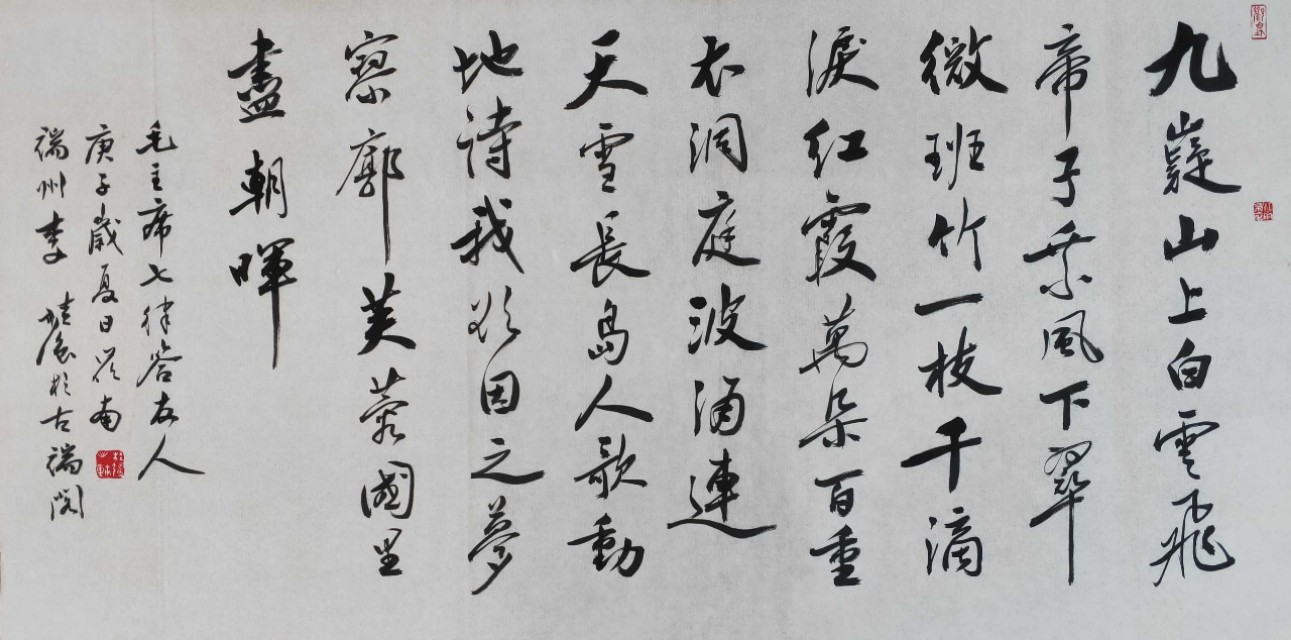 九嶷山上白雲飛
帝子乘風下翠
微班竹一枝千滴
淚紅霞萬朵百重
衣洞庭波涌連
天雪長島人歌動
地詩我欲因之夢
寥廓芙蓉國里
盡朝暉
毛主席七律答友人
庚子歲夏日岭南
端州李於古端